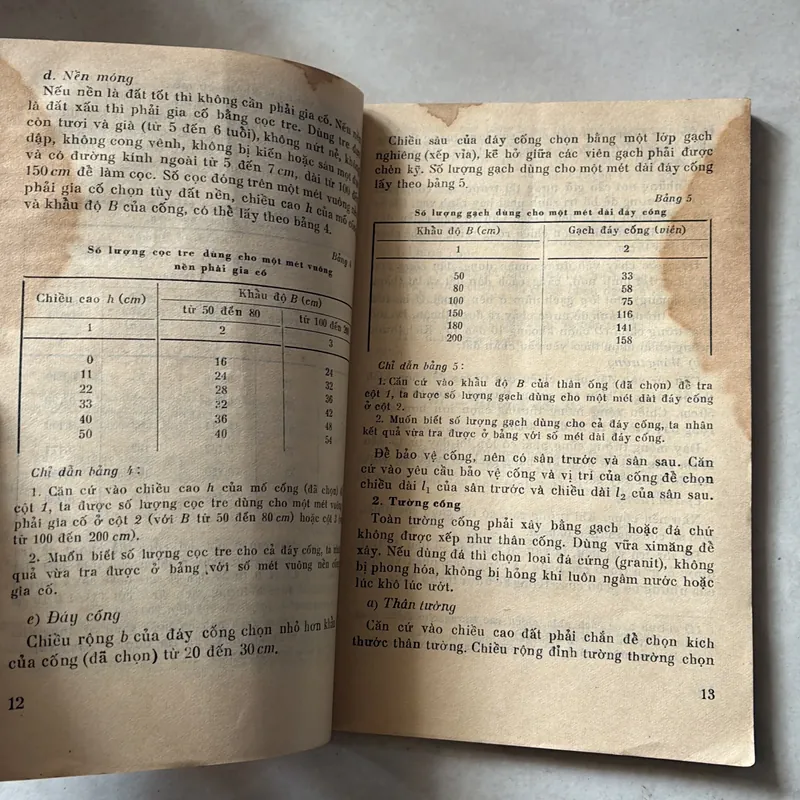 d. Nền móng
Nếu nền là đất tốt thì không cần phải gia cố. Nếu nền
là đất xấu thì phải gia cố bằng cọc tre. Dùng tre
còn tươi và già (từ 5 đến 6 tuổi), không nứt nẻ,
dập, không cong vênh, không bị kiến hoặc sâu mọt
và có đường kính ngoài từ 5 đến 7 cm, dài từ 100 đến
150 cm để làm cọc. Số cọc đóng trên một mét vuông
phải gia cố chọn tùy đất nền, chiều cao h của mố cống
và khẩu độ B của cống, có thể lấy theo bảng 4.
Bảng 4
Số lượng cọc tre dùng cho một mét vuông
nền phải gia cố
Chiều cao h (cm) Khẩu độ B (cm)
từ 50 đến 80 từ 100 đến
1 2 3
0 16 24
11 24 32
22 28 36
33 32 42
40 36 48
50 40 54
Chỉ dẫn bảng 4:
1. Căn cứ vào chiều cao h của mố cống (đã chọn)
cột 1, ta được số lượng cọc tre dùng cho một mét vuông
phải gia cố ở cột 2 (với B từ 50 đến 80 cm) hoặc cột
từ 100 đến 200 cm).
2. Muốn biết số lượng cọc tre cho cả đáy cống, ta
quả vừa tra được ở bảng với số mét vuông nền cống
gia cố.
e) Đáy cống
Chiều rộng b của đáy cống chọn nhỏ hơn khẩu
của cống (đã chọn) từ 20 đến 30 cm.
12
Chiều sâu của đáy cống chọn bằng một lớp gạch
nghiêng (xếp vỉa), kẽ hở giữa các viên gạch phải được
chèn kỹ. Số lượng gạch dùng cho một mét dài đáy cống
lấy theo bảng 5.
Bảng 5
Số lượng gạch dùng cho một mét dài đáy cống
Khẩu độ B (cm) Gạch đáy cống (viên)
1 2
50 33
80 58
100 75
150 116
180 141
200 158
Chỉ dẫn bảng 5:
1. Căn cứ vào khẩu độ B của thân ống (đã chọn) để tra
cột 1, ta được số lượng gạch dùng cho một mét dài đáy cống
ở cột 2.
2. Muốn biết số lượng gạch dùng cho cả đáy cống, ta nhân
kết quả vừa tra được ở bảng với số mét dài đáy cống.
Để bảo vệ cống, nên có sân trước và sân sau. Căn
cứ vào yêu cầu bảo vệ cống và vị trí của cống để chọn
chiều dài l₁ của sân trước và chiều dài l₂ của sân sau.
2. Tường cống
Toàn tường cống phải xây bằng gạch hoặc đá chứ
không được xếp như thân cống. Dùng vữa ximăng để
xây. Nếu dùng đá thì chọn loại đá cứng (granit), không
bị phong hóa, không bị hỏng khi luôn ngâm nước hoặc
lúc khô lúc ướt.
a) Thân tường
Căn cứ vào chiều cao đất phải chắn để chọn kích
thước thân tường. Chiều rộng đỉnh tường thường chọn
13